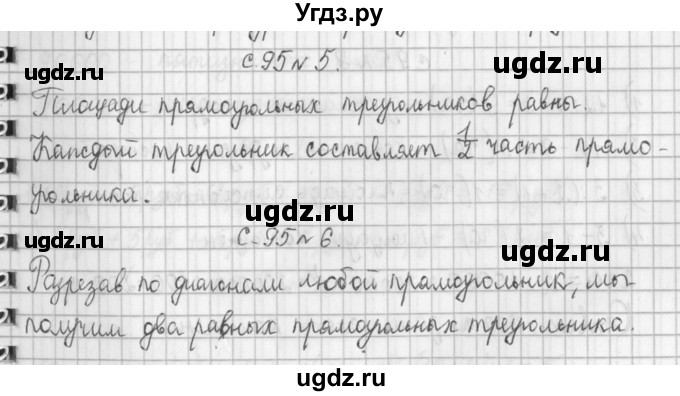 Угдз.ру
с.95 N 5.
ugdz.ru ugdz.ru
Площади прямоугольных треугольников равны.
Каждый треугольник составляет 1/2 часть прямо-
ugdz.ru
угольника.
ugdz.ru
с.95 N 6.
ugdz.ru ugdz.ru
Разрезав по диагонали любой прямоугольник, мы
получим два равных прямоугольных треугольника.
ugdz.ru
ugdz.ru